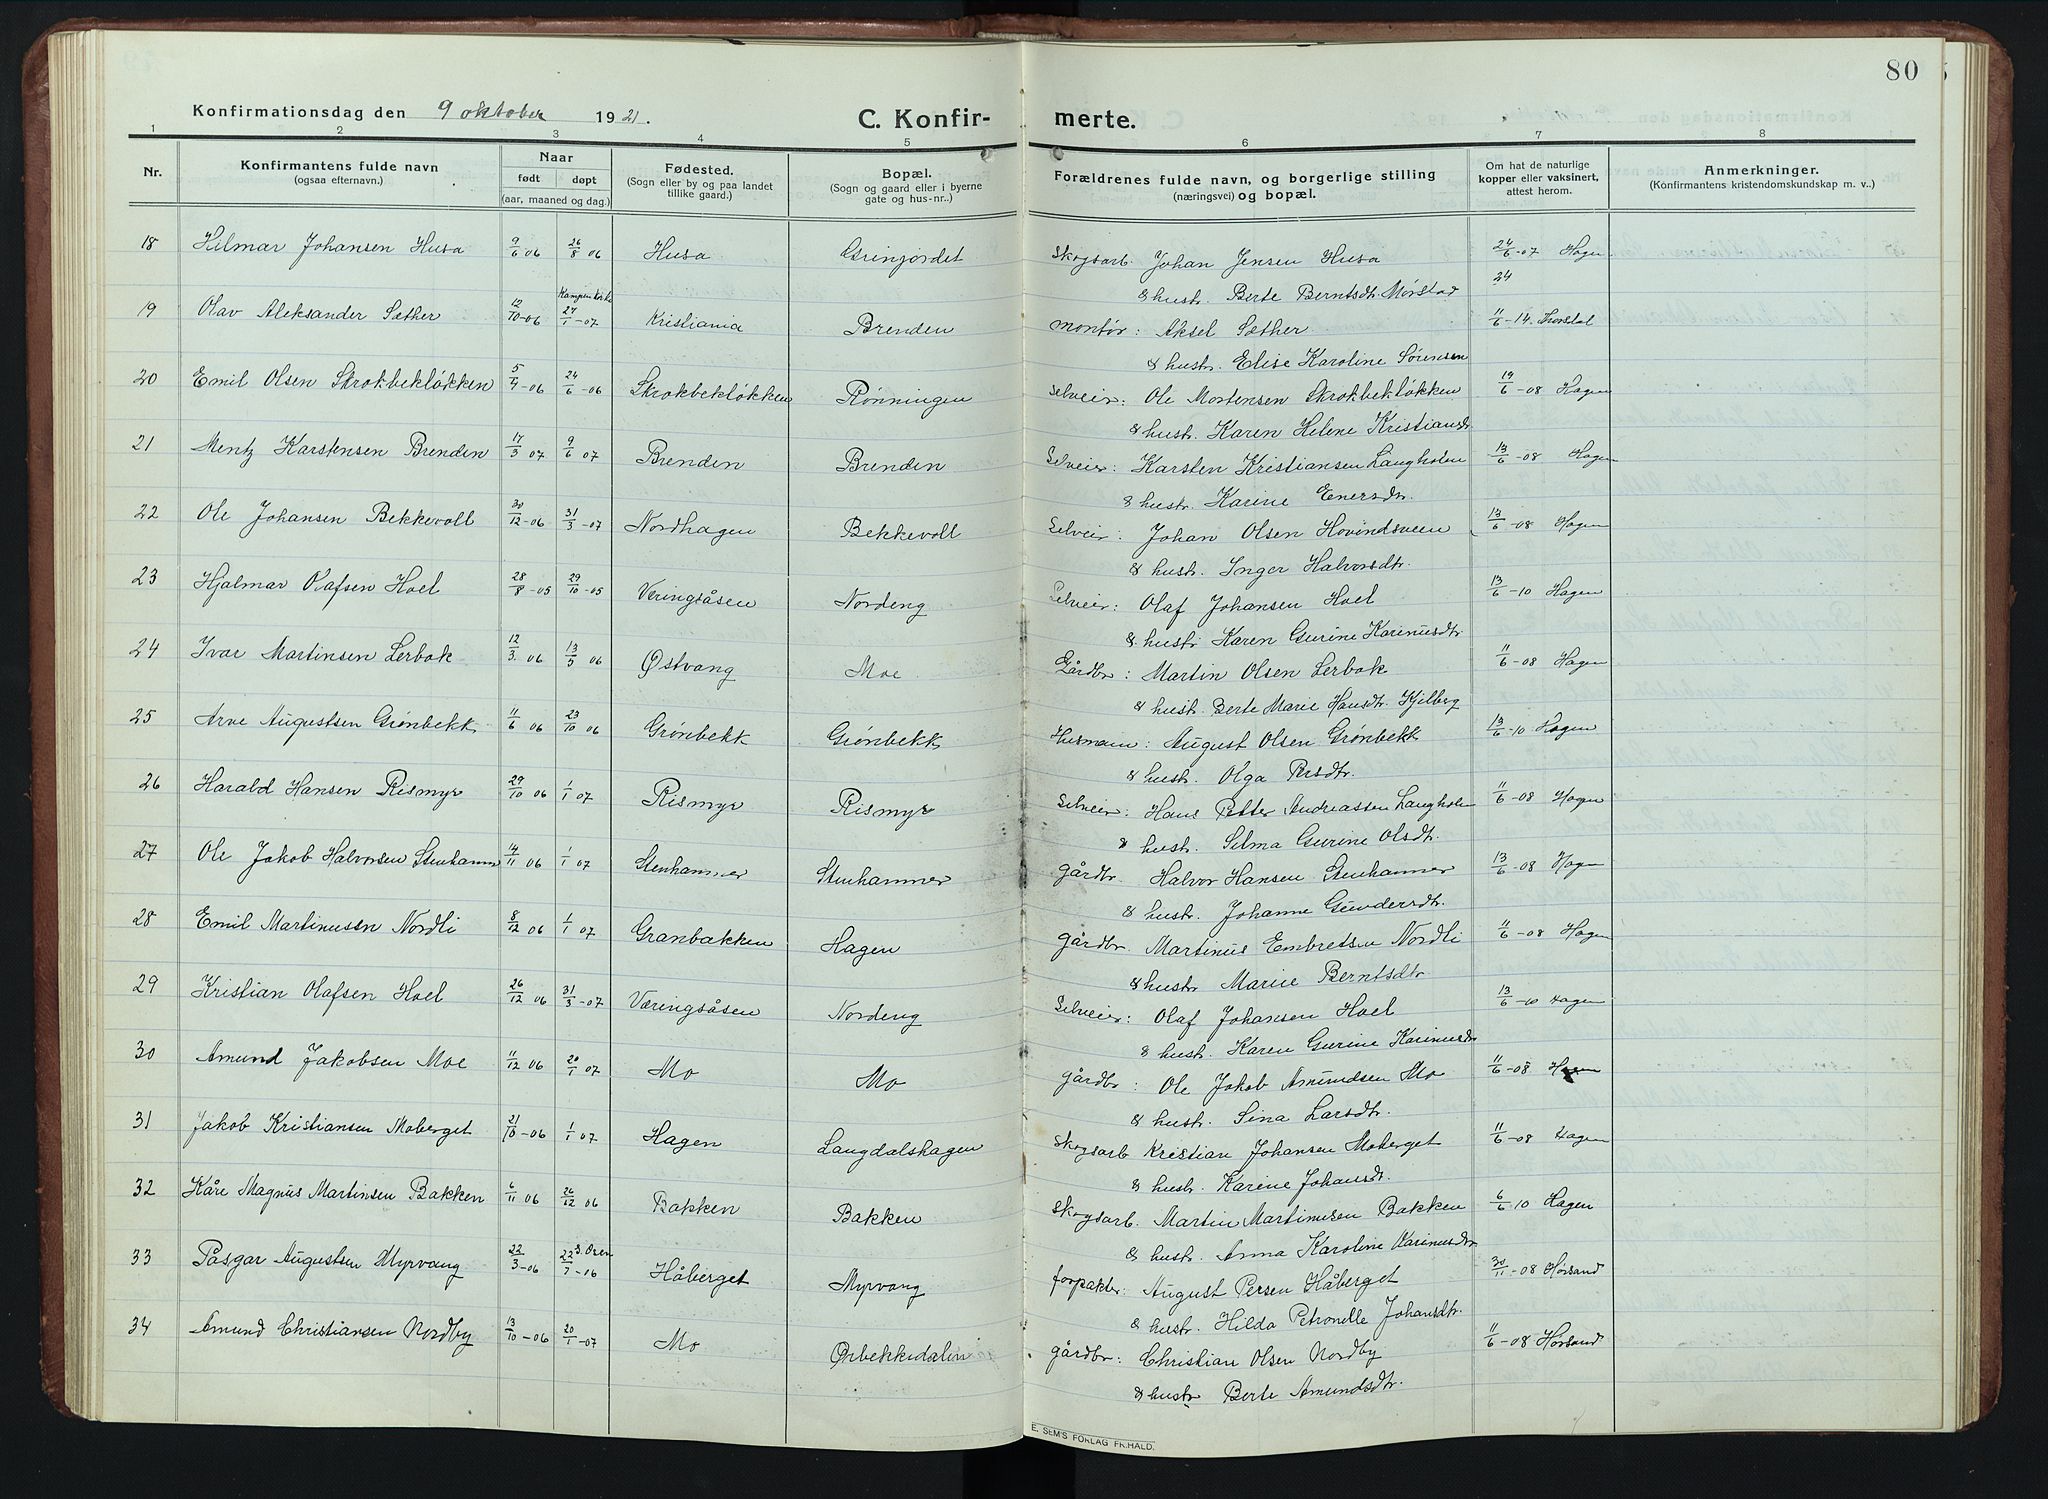 80
Konfirmationsdag den 9 oktober 1921.
C. Konfirmerte.
1 2 3 4 5 6 7 8
Nr.
Konfirmantens fulde navn
(ogsaa efternavn.)
Naar
født døpt
(aar, maaned og dag.)
Fødested.
(Sogn eller by og paa landet
tillike gaard.)
Bopæl.
(Sogn og gaard eller i byerne
gate og hus-nr..)
Forældrenes fulde navn, og borgerlige stilling
(næringsvei) og bopæl.
Om hat de naturlige
kopper eller vaksinert,
attest herom.
Anmerkninger.
(Konfirmantens kristendomskundskap m. v..)
18 Hilmar Johansen Husa 9/6 06 26/8 06 Husa Grinjordet Skogsarb. Johan Jensen Husa 24/6-07 Hagen
& hustr. Berte Berntsdtr. Mørstad 24
Kampen kirke
19 Olav Aleksander Sæther 12/10-06 27/1-07 Kristiania Brenden montør: Aksel Sæther 11/6-14.
& hustr. Elise Karoline Sørensen
20 Emil Olsen Strokbekløkken 5/4-06 24/6-06 Strokbekløkken Rønningen selveier: Ole Mortensen Strokbekløkken 19/6-08 Hagen
& hustr. Karen Helene Kristiansdtr.
21 Mentz Karstensen Brenden 17/3 07 9/6 07 Brenden Brenden Selveier: Karsten Kristiansen Langholen 13/6-08 Hagen
& hustr. Karine Enersdtr.
22 Ole Johansen Bekkevoll 30/12-06 31/3-07 Nordhagen Bekkevoll Selveier: Johan Olsen Hovindsveen 13/6-08 Hagen
& hustr. Inger Halvorsdtr.
23 Hjalmar Olafsen Hoel 28/8-05 29/10-05 Veringsåsen Nordeng Selveier: Olaf Johansen Hoel 13/6-10 Hagen
& hustr. Karen Gurine Karinusdtr.
24 Ivar Martinsen Lerbak 12/3 06 13/5 06 Østvang Moe Gårdbr: Martin Olsen Lerbak 11/6-08 Hagen
& hustr. Berte Marie Hansdtr. Kjelberg
25 Arve Augustsen Grønbekk 11/6 06 23/10 06 Grønbekk Grønbekk Husmann: August Olsen Grønbekk 13/6-10 Hagen
& hustr. Olga Persdtr.
26 Harald Hansen Rismyr 29/10 06 1/1 07 Rismyr Rismyr Selveier: Hans Petter Andreassen Langholen 11/6-08 Hagen
& hustr. Selma Gurine Olsdtr.
27 Ole Jakob Halvorsen Stenhammer 14/11 06 1/1 07 Stenhammer Stenhammer gårdbr. Halvor Hansen Stenhammer 13/6-08 Hagen
& hustr. Johanne Gundersdtr.
28 Emil Martinussn Nordli 8/12 06 1/1 07 Granbakken Hagen gårdbr. Martinus Embretsen Nordli 11/6-08 Hagen
& hustr Marie Berntsdtr.
29 Kristian Olafsen Hoel 26/12 06 31/3-07 Væringsåsen Nordeng Selveier: Olaf Johansen Hoel 13/6-10 Hagen
& hustr. Karen Gurine Karinusdtr
30 Amund Jakobsen Moe 11/12 06 20/1 07 Mo Mo gårdbr: Ole Jakob Amundsen Mo 11/6-08 Hagen
& hustr. Sina Larsdtr.
31 Jakob Kristiansen Moberget 21/10-06 1/1 07 Hagen Langdalshagen Skogsarb Kristian Johansen Moberget 11/6-08 Hagen
& hustr. Karene Johansdtr.
32 Kåre Magnus Martinsen Bakken 6/11 06 26/12 06 Bakken Bakken Skogsarb. Martin Martinusen Bakken 6/6 10 Hagen
& hustr. Anna Karoline Karinusdtr
33 Påsgar Augustsen Myrvang 22/3-06 22/7-06 Håberget Myrvang forpakter: August Persen Håberget 30/11-08 Hørsand
& hustr. Hilda Petronelle Johansdtr.
34 Amund Christiansen Nordby 13/10-06 20/1-07 Mo Ørbekkedalen gårdbr: Christian Olsen Nordby 11/6-08 Hørsand
& hustr Berte Amundsdtr.
E. SEM'S FORLAG FR.HALD.